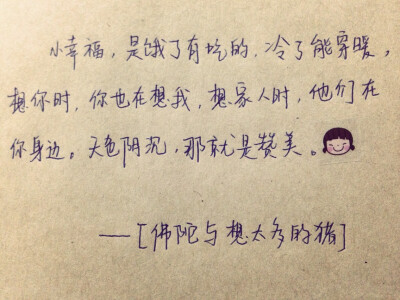 小幸福，是饿了有吃的，冷了能穿暖，
想你时，你也在想我，想家人时，他们在
你身边。天色阴沉，那就是赞美。
——[佛陀与想太多的猪]